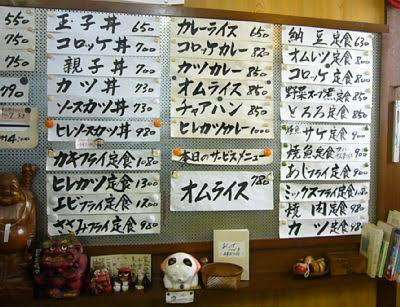 550
750
750
790
玉子丼 650
コロッケ丼 700
親子丼 700
カツ丼 750
ソースカツ丼 750
ヒレソースカツ丼 980
カキフライ定食 1080
ヒレカツ定食 1300
エビフライ定食 1200
ささみフライ定食 980
カレーライス 650
コロッケカレー 820
カツカレー 850
オムライス 850
チャーハン 850
ヒレカツカレー 1000
本日のサービスメニュー
オムライス 780
納豆定食 630
オムレツ定食
コロッケ定食 800
野菜スープ煮定食 850
とろろ定食 850
サケ定食 900
焼魚定食
あじフライ定食 900
ミックスフライ定食
焼肉定食 980
カツ定食 980